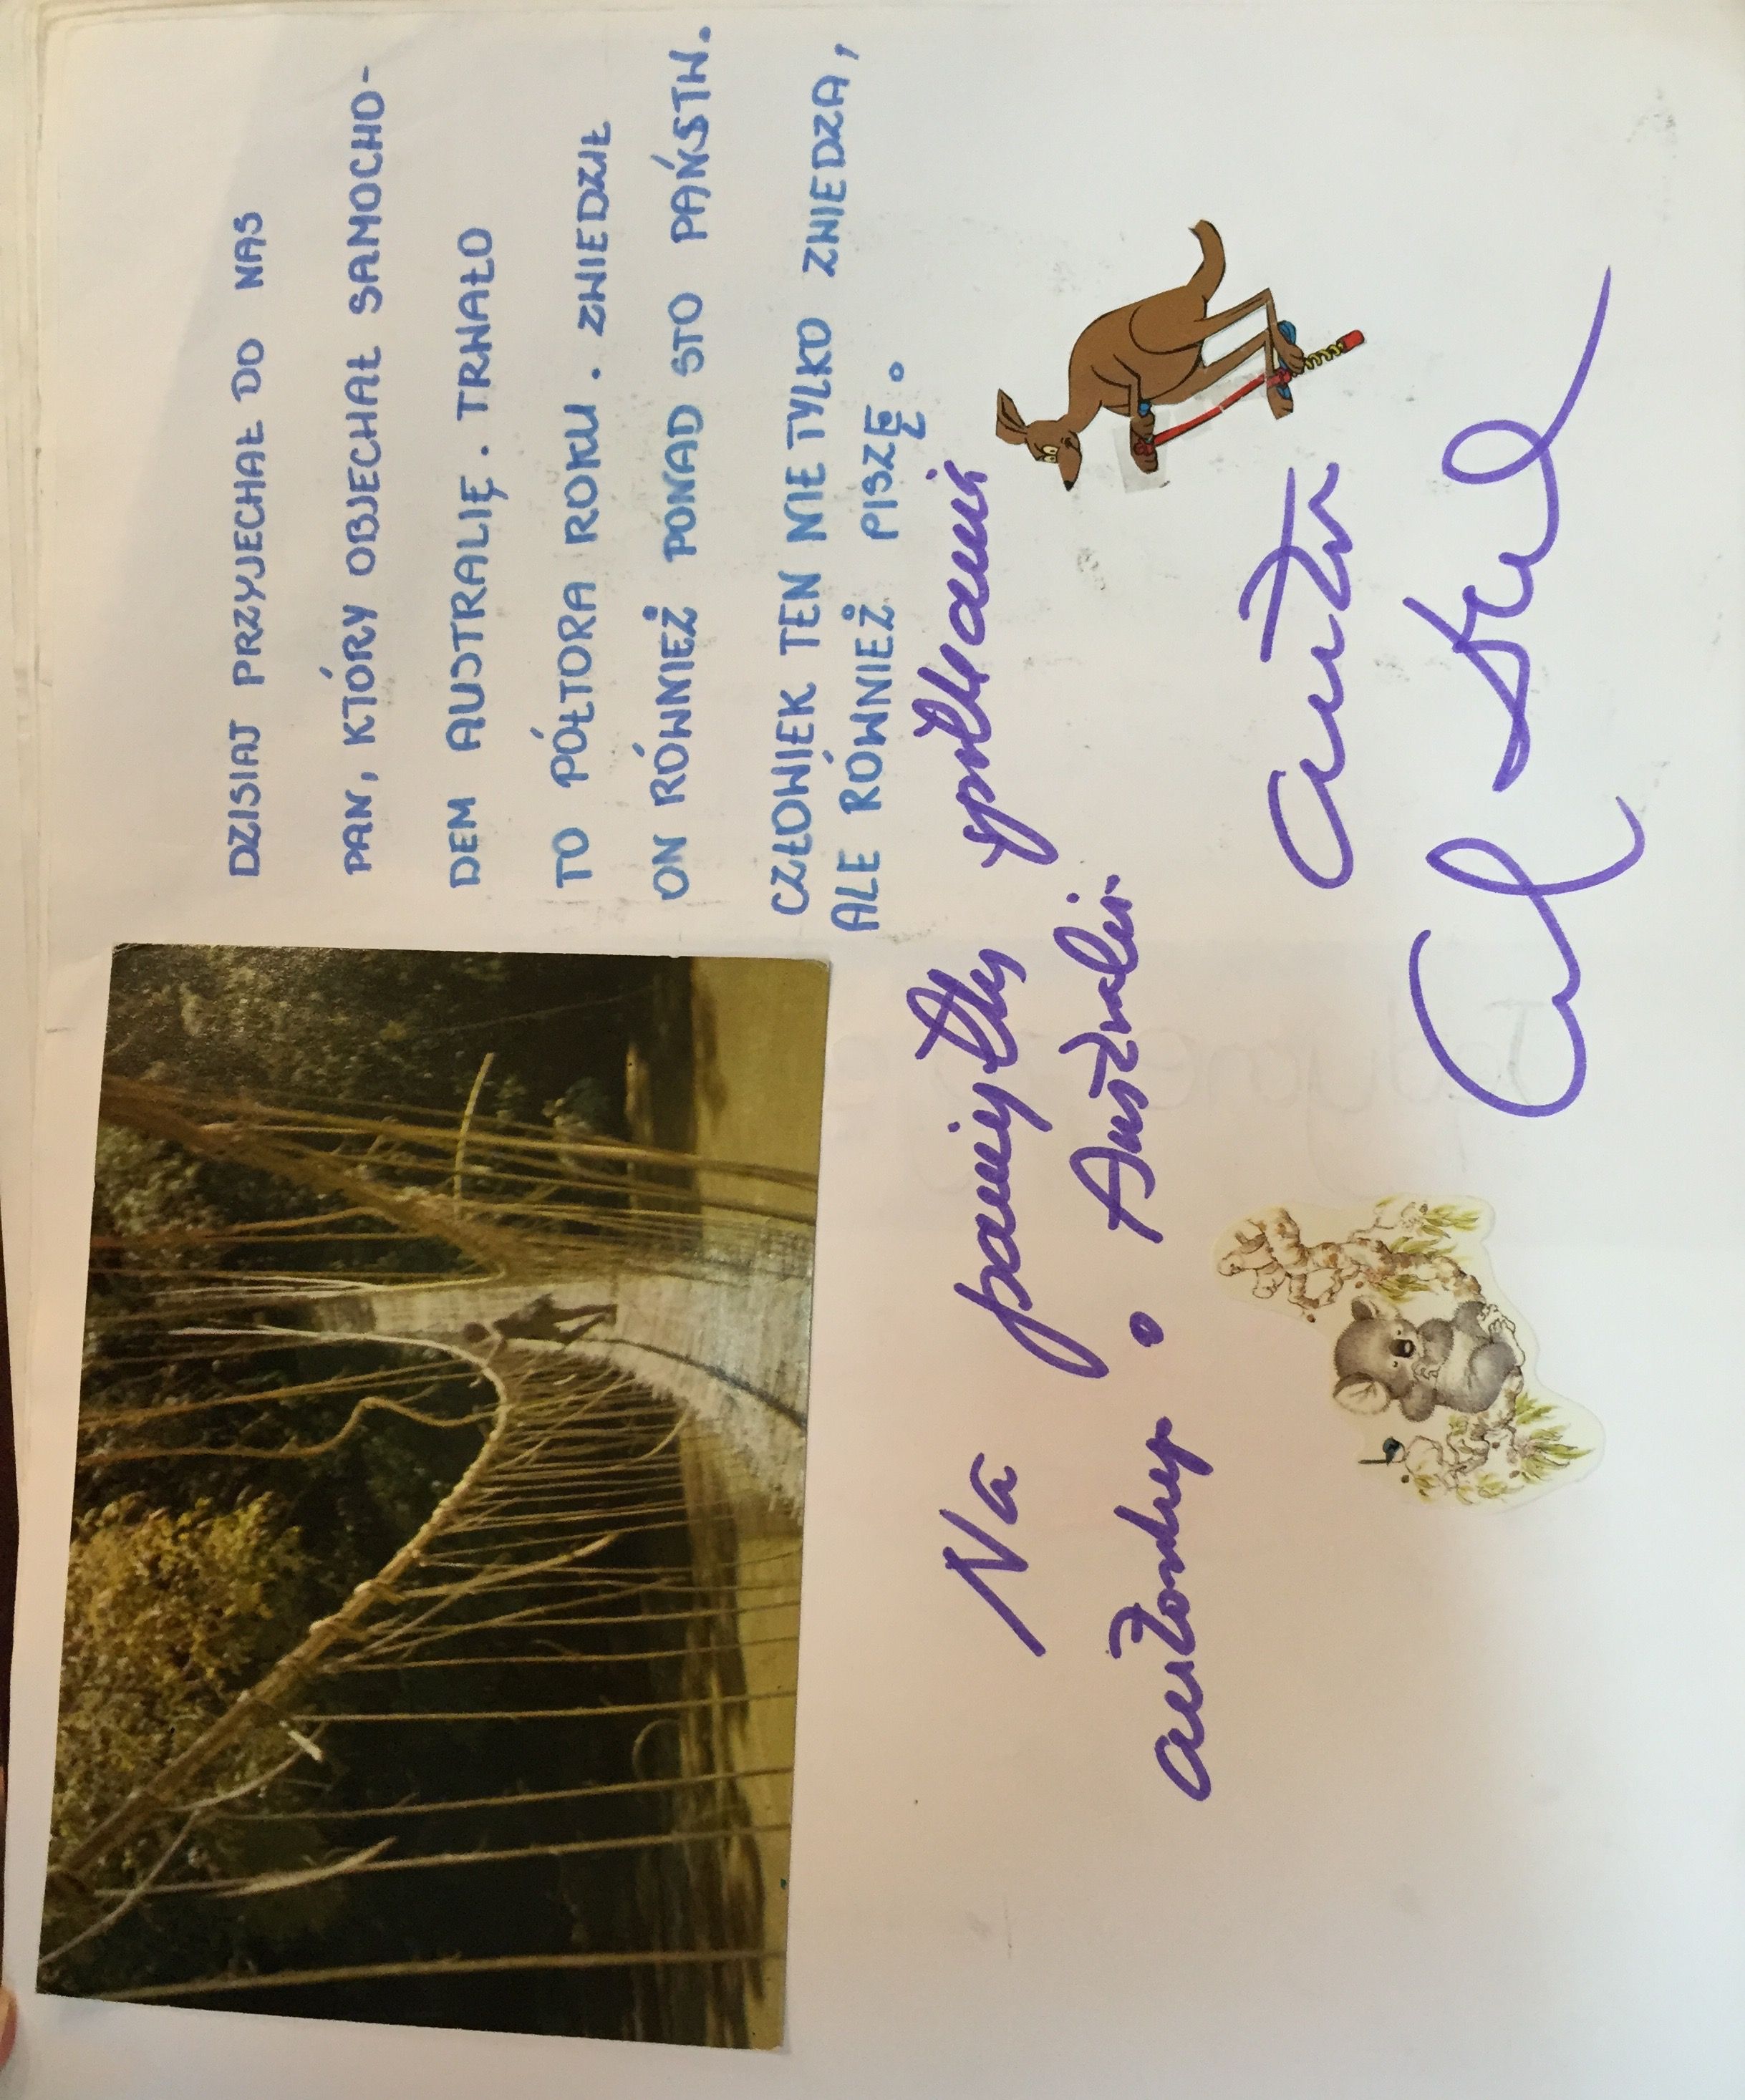 DZISIAJ PRZYJECHAŁ DO NAS
PAN, KTÓRY OBJECHAŁ SAMOCHO-
DEM AUSTRALIĘ. TRWAŁO
TO PÓŁTORA ROKU. ZWIEDZIŁ
ON RÓWNIEŻ PONAD STO PAŃSTW.
CZŁOWIEK TEN NIE TYLKO ZWIEDZA,
ALE RÓWNIEŻ PISZĘ.
Na pamiątkę spotkania
autorskiego o Australii
autor